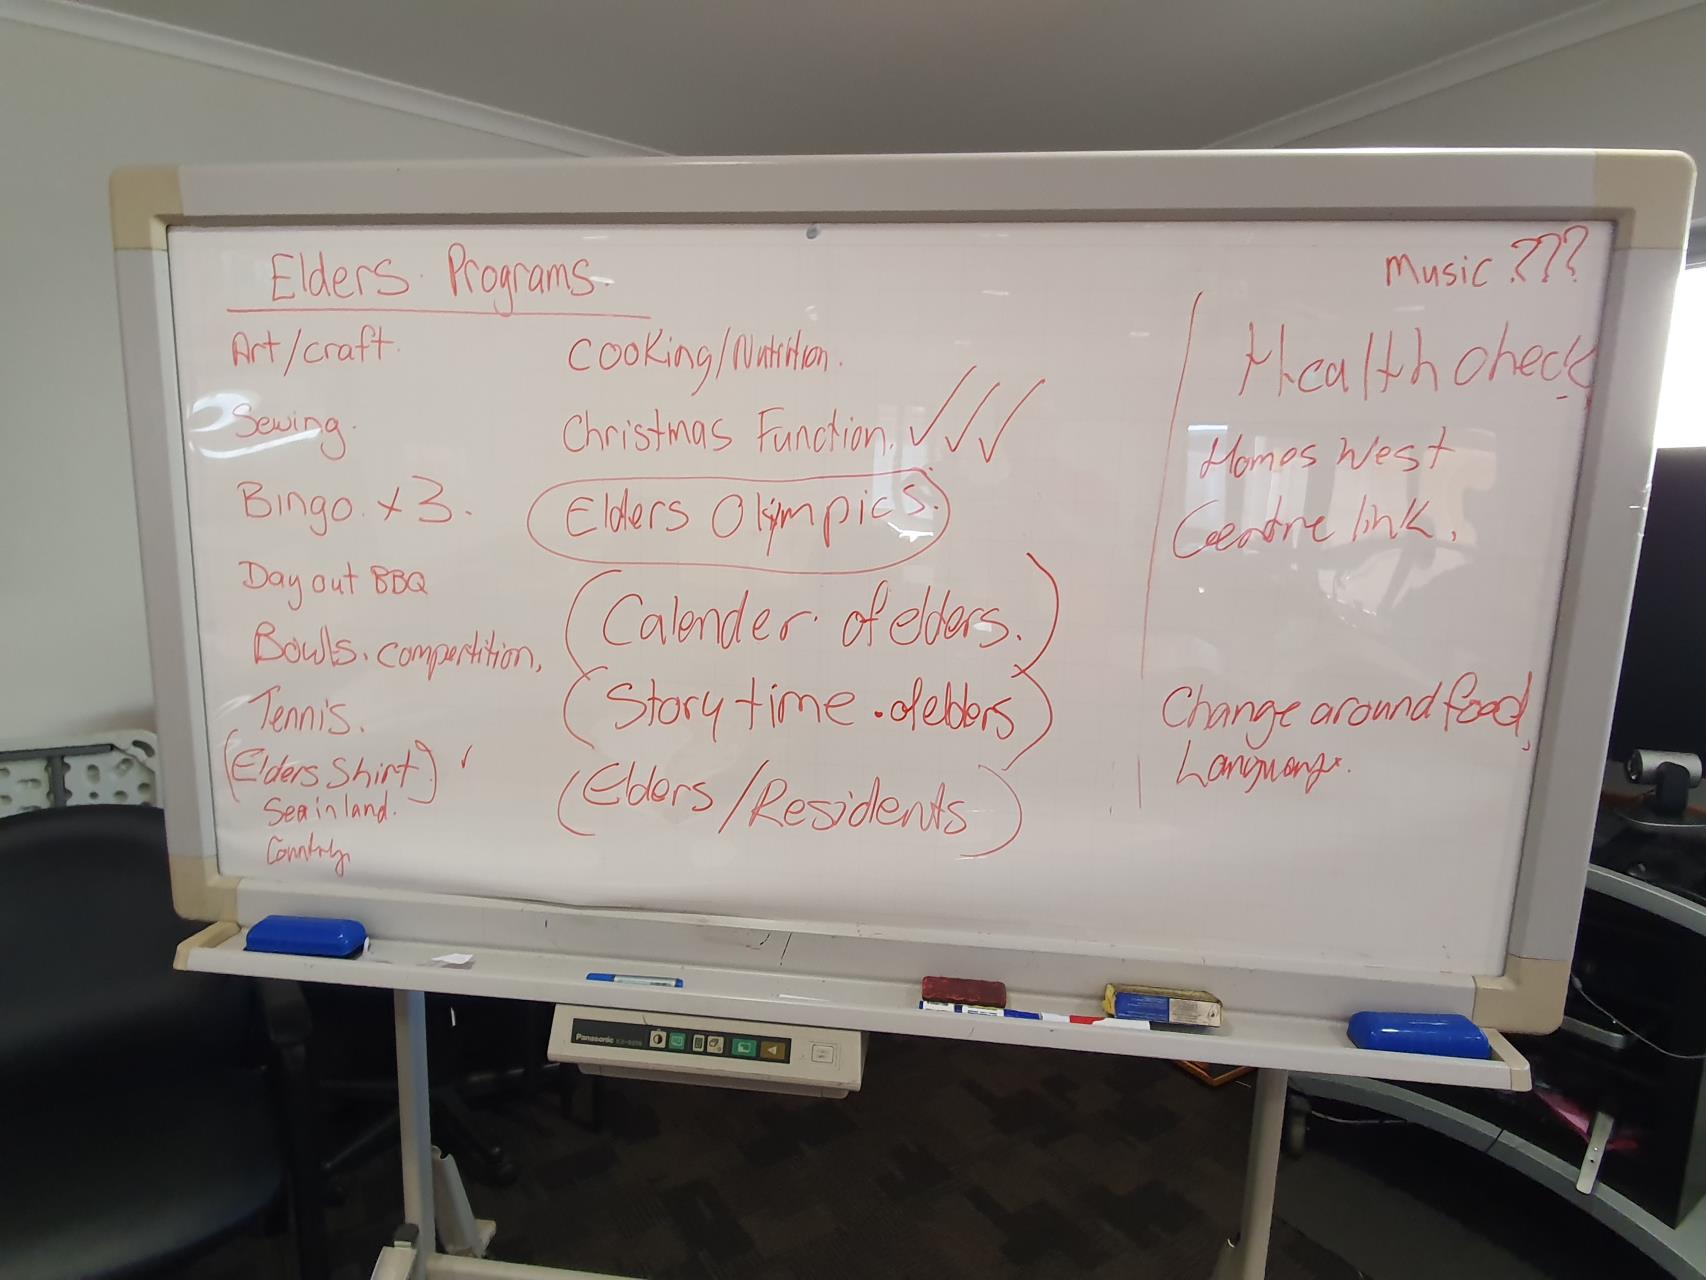 Elders. Programs.
Art/craft.
Sewing.
Bingo. x 3.
Day out BBQ
Bowls. compertition,
Tennis.
(Elders Shirt)
Sea in land.
Country
Cooking/Nutrition.
Christmas Function.
Elders Olympics.
(Calender of elders.)
(Story time. of elders)
(Elders/Residents)
Music ???
Health check
Homes West
Centre link.
Change around food,
Language.
Panasonic